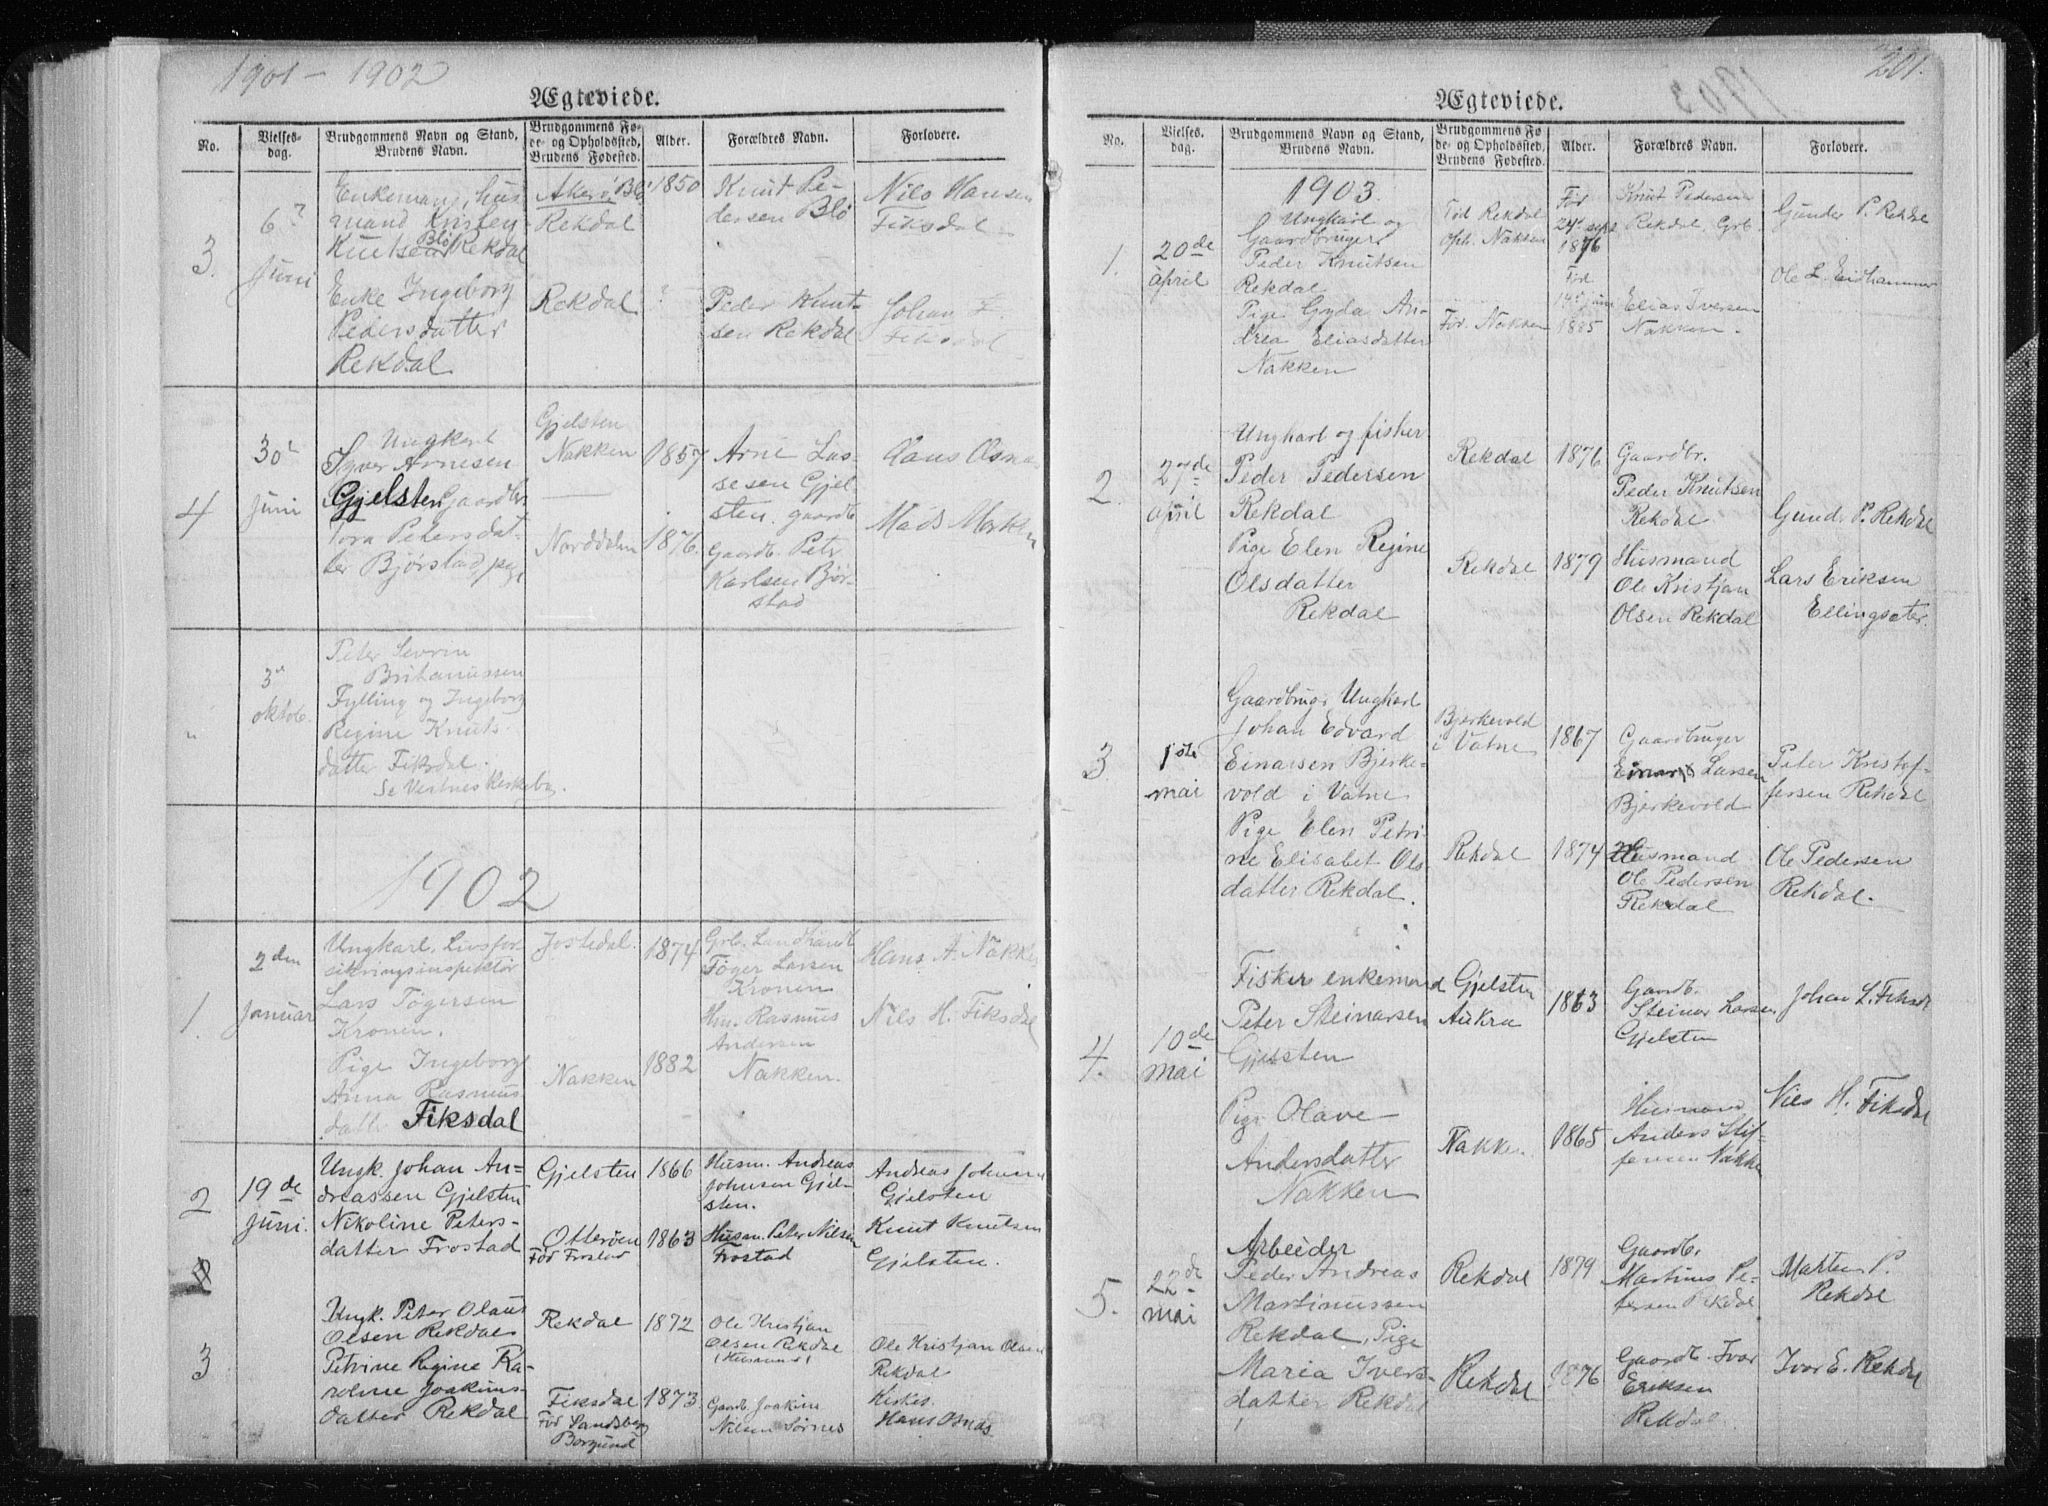 1901 - 1902
Ægteviede.
No.
Vielses-
dag.
Brudgommens Navn og Stand,
Brudens Navn.
Brudgommens Fø-
de- og Opholdssted,
Brudens Fødested.
Alder.
Forældres Navn.
Forlovere.
3.
6?
Juni
Enkemand, hus
mand Kristen
Knutsen Blø Rekdal
Akerø Blø
Rekdal
1850
Knut Pe-
dersen Blø
Nils Hansen
Fiksdal
Enke Ingeborg
Pedersdatter
Rekdal
Rekdal
?
Peder Knut-
sen Rekdal
Johan
Fiksdal
4
30
Juni
Ungkarl
Syver Arnesen
Gjelsten Gaardbr.
Tora Petersdat-
ter Bjørstad, pige
Gjelsten
Nakken
Norddalen
1857
1876.
Arne Las-
sesen Gjel-
sten. gaardb
Gaardb. Peter
Karlsen Bjør-
stad
Hans Osnes
Mads Morken
"
3
oktob.
Peter Sevrin
Fylling og Ingeborg
Regine Knuts-
datter Fiksdal.
Se Vestnes kirkebog.
1902
1.
2den
Januar
Ungkarl, Livsfor
sikringsinspektør
Lars Tøgersen
Kronen.
Jostedal.
1874
Grb. Landhandl
Tøger Larsen
Kronen
Hans A. Nakken
Pige Ingeborg
Anna Rasmus
datter Fiksdal
Nakken
1882
Hm. Rasmus
Andersen
Nakken.
Nils H. Fiksdal
2
19de
Juni.
Ungk. Johan An-
dreassen Gjelsten
Nikoline Peters-
datter Frostad
Gjelsten
Otterøen
Fød Frostad
1866
1863
Husm. Andreas
Johnsen Gjel-
sten.
Husm. Peter Nilsen
Frostad
Andreas Johnsen
Gjelsten
Knut Knutsen
Gjelsten.
3
Ungk. Peter Olaus
Olsen Rekdal
Petrine Regine Ka-
roline Joakims-
datter Rekdal
Rekdal
Fiksdal
Fød Landsberg
Borgund
1872
1873.
Ole Kristjan
Olsen Rekdal
(Husmand)
Gaardb. Joakim
Nilsen Sørnes
Ole Kristjan Olsen
Rekdal
Kirkes.
Hans Osnes
1903
201.
Ægteviede.
No.
Vielses-
dag.
Brudgommens Navn og Stand,
Brudens Navn.
Brudgommens Fø-
de- og Opholdssted,
Brudens Fødested.
Alder.
Forældres Navn.
Forlovere.
1903.
1.
20de
april
Ungkarl og
Gaardbruger
Peder Knutsen
Rekdal
Pige Gyda An-
drea Eliasdatter
Nakken
Fød Rekdal
oph. Nakken
Fød. Nakken
Fød
24de sept
1876
Fød
14de juni
1885
Knut Pedersen
Rekdal, Grb.
Elias Iversen
Nakken.
Gunder P. Rekdal
Ole L. Eidhammer
2.
27de
april
Ungkarl og fisker
Peder Pedersen
Rekdal
Pige Elen Regine
Olsdatter
Rekdal
Rekdal
Rekdal
1876
1879
Gaardbr.
Peder Knutsen
Rekdal
Husmand
Ole Kristjan
Olsen Rekdal
Gunder P. Rekdal
Lars Eriksen
Ellingsæter.
3.
1ste
mai
Gaardbruger Ungkarl
Johan Edvard
Einarsen Bjerke-
vold i Vatne
Pige Elen Petri-
ne Elisabet Ols-
datter Rekdal.
Bjerkevold
i Vatne
Rekdal
1867
1874
Gaardbruger
Einar Larsen
Bjerkevold
Husmand
Ole Pedersen
Rekdal
Peter Kristof-
fersen Rekdal
Ole Pedersen
Rekdal.
4.
10de
mai
Fisker enkemand
Peter Steinarsen
Gjelsten
Pige Olave
Andersdatter
Nakken
Gjelsten
Aukra
Nakken
1863
1865
Gaardb.
Steinar Larsen
Gjelsten
Husmand
Anders Stef-
fensen Nakken
Johan L. Fiksdal
Nils H. Fiksdal
5.
22de
mai
Arbeider
Peder Andreas
Martinussen
Rekdal, Pige
Maria Ivers-
datter Rekdal
Rekdal
Rekdal
1879
1876
Gaardb.
Martinus Pe-
tersen Rekdal
Gaardb. Ivar
Eriksen
Rekdal
Marten P.
Rekdal
Ivar E. Rekdal